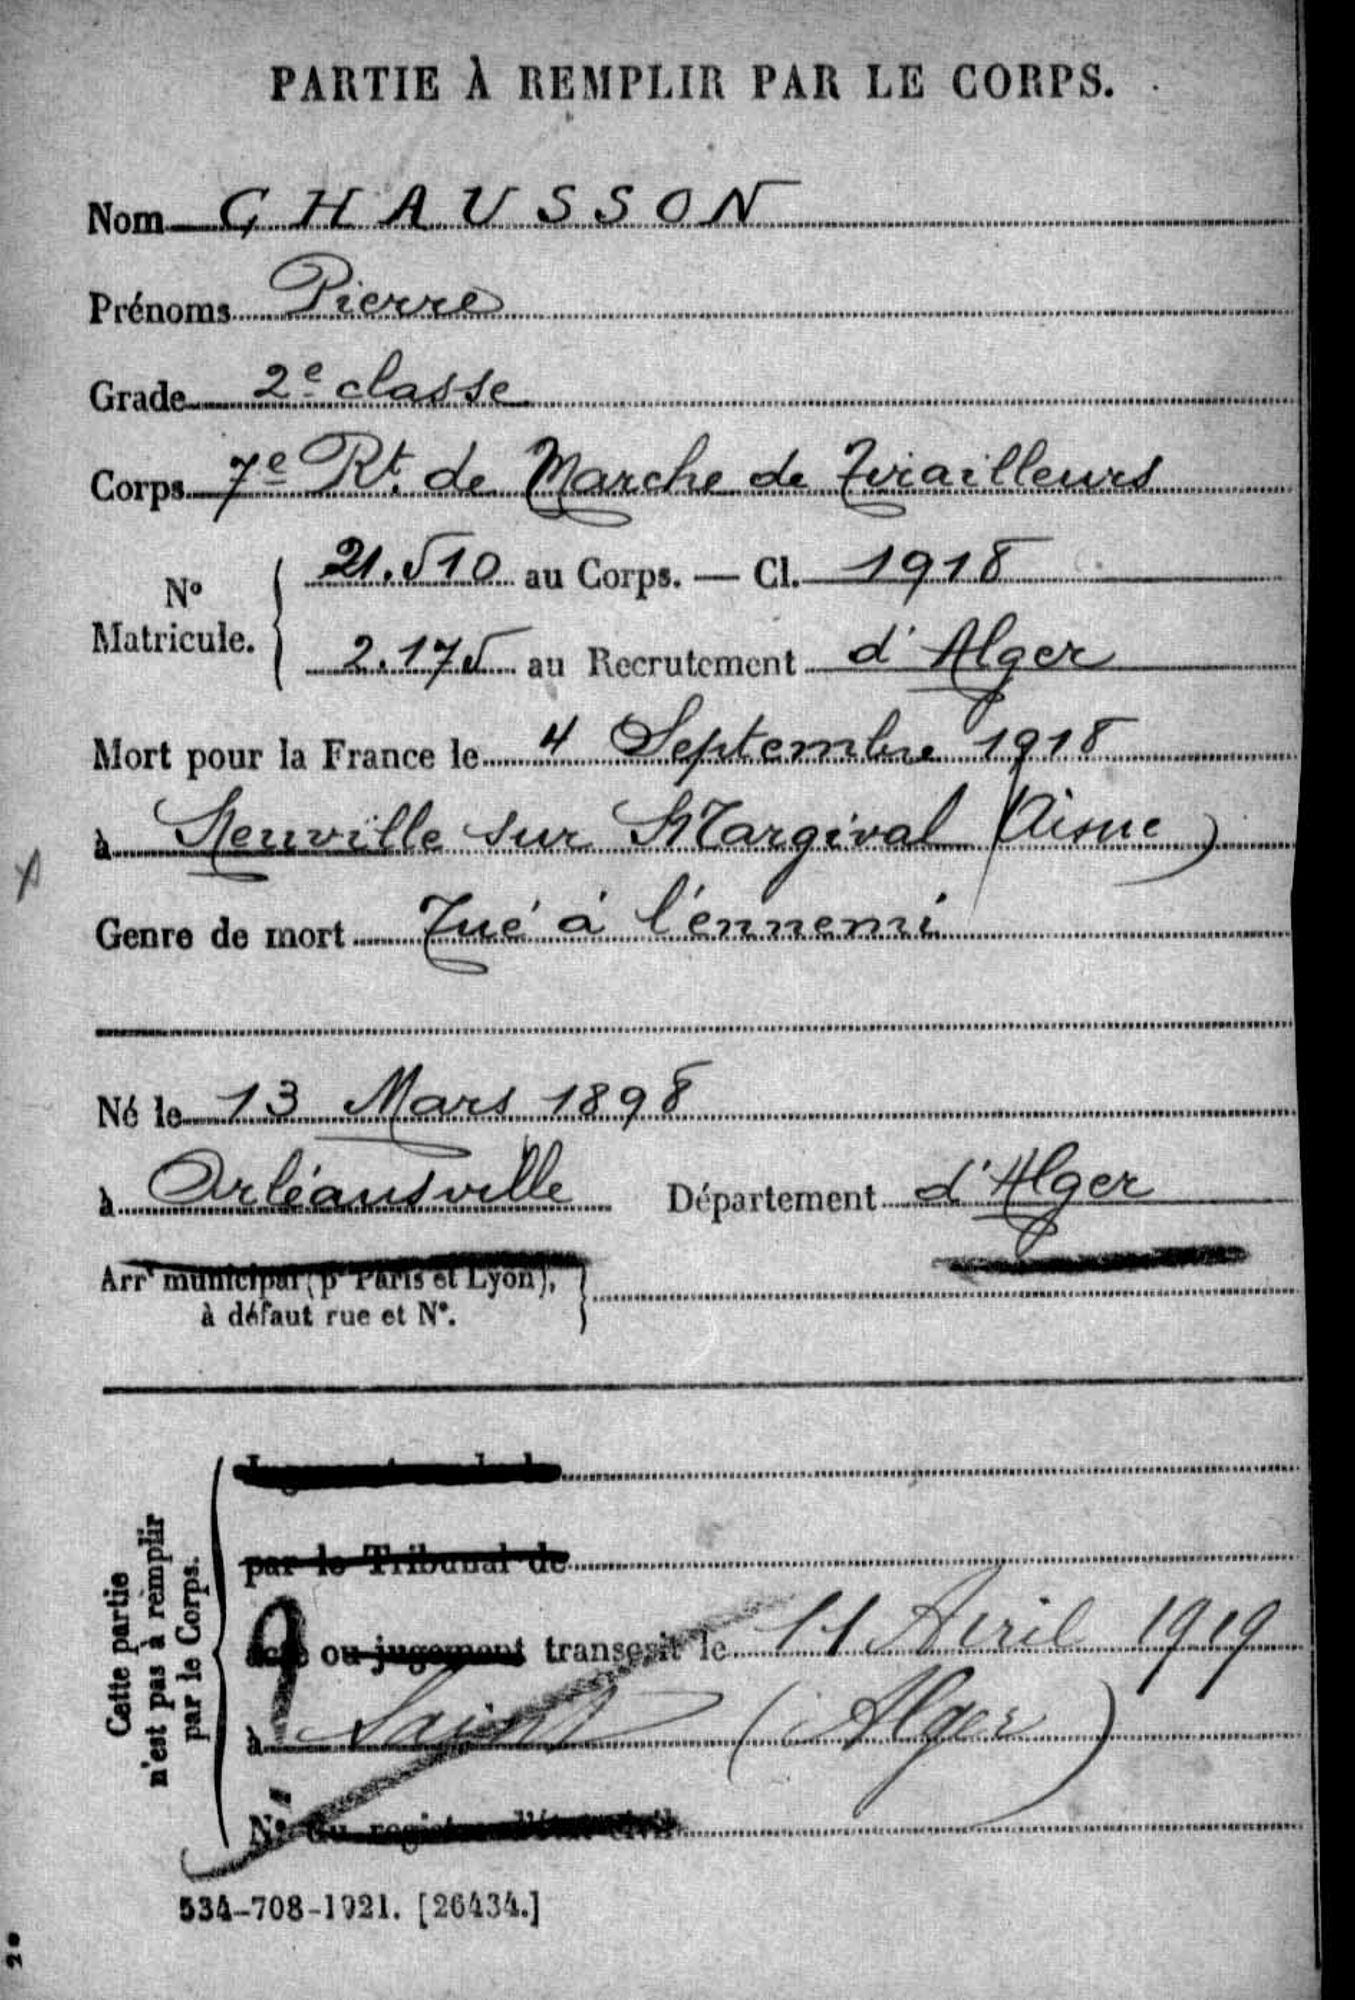 PARTIE À REMPLIR PAR LE CORPS.
Nom CHAUSSON
Prénoms Pierre
Grade 2e classe
Corps 7e Rt. de Marche de Tirailleurs
No Matricule. { 21.510 au Corps. — Cl. 1918
2.175 au Recrutement d'Alger
Mort pour la France le 4 Septembre 1918
à Neuville sur Margival (Aisne)
Genre de mort Tué à l'ennemi
Né le 13 Mars 1898
à Orléansville Département d'Alger
Arrt municipal (pr Paris et Lyon),
à défaut rue et No.
Cette partie
n'est pas à remplir
par le Corps.
par le Tribunal de
acte ou jugement transcrit le 11 Avril 1919
à (Alger)
No du registre d'état civil
534-708-1921. [26434.]
20